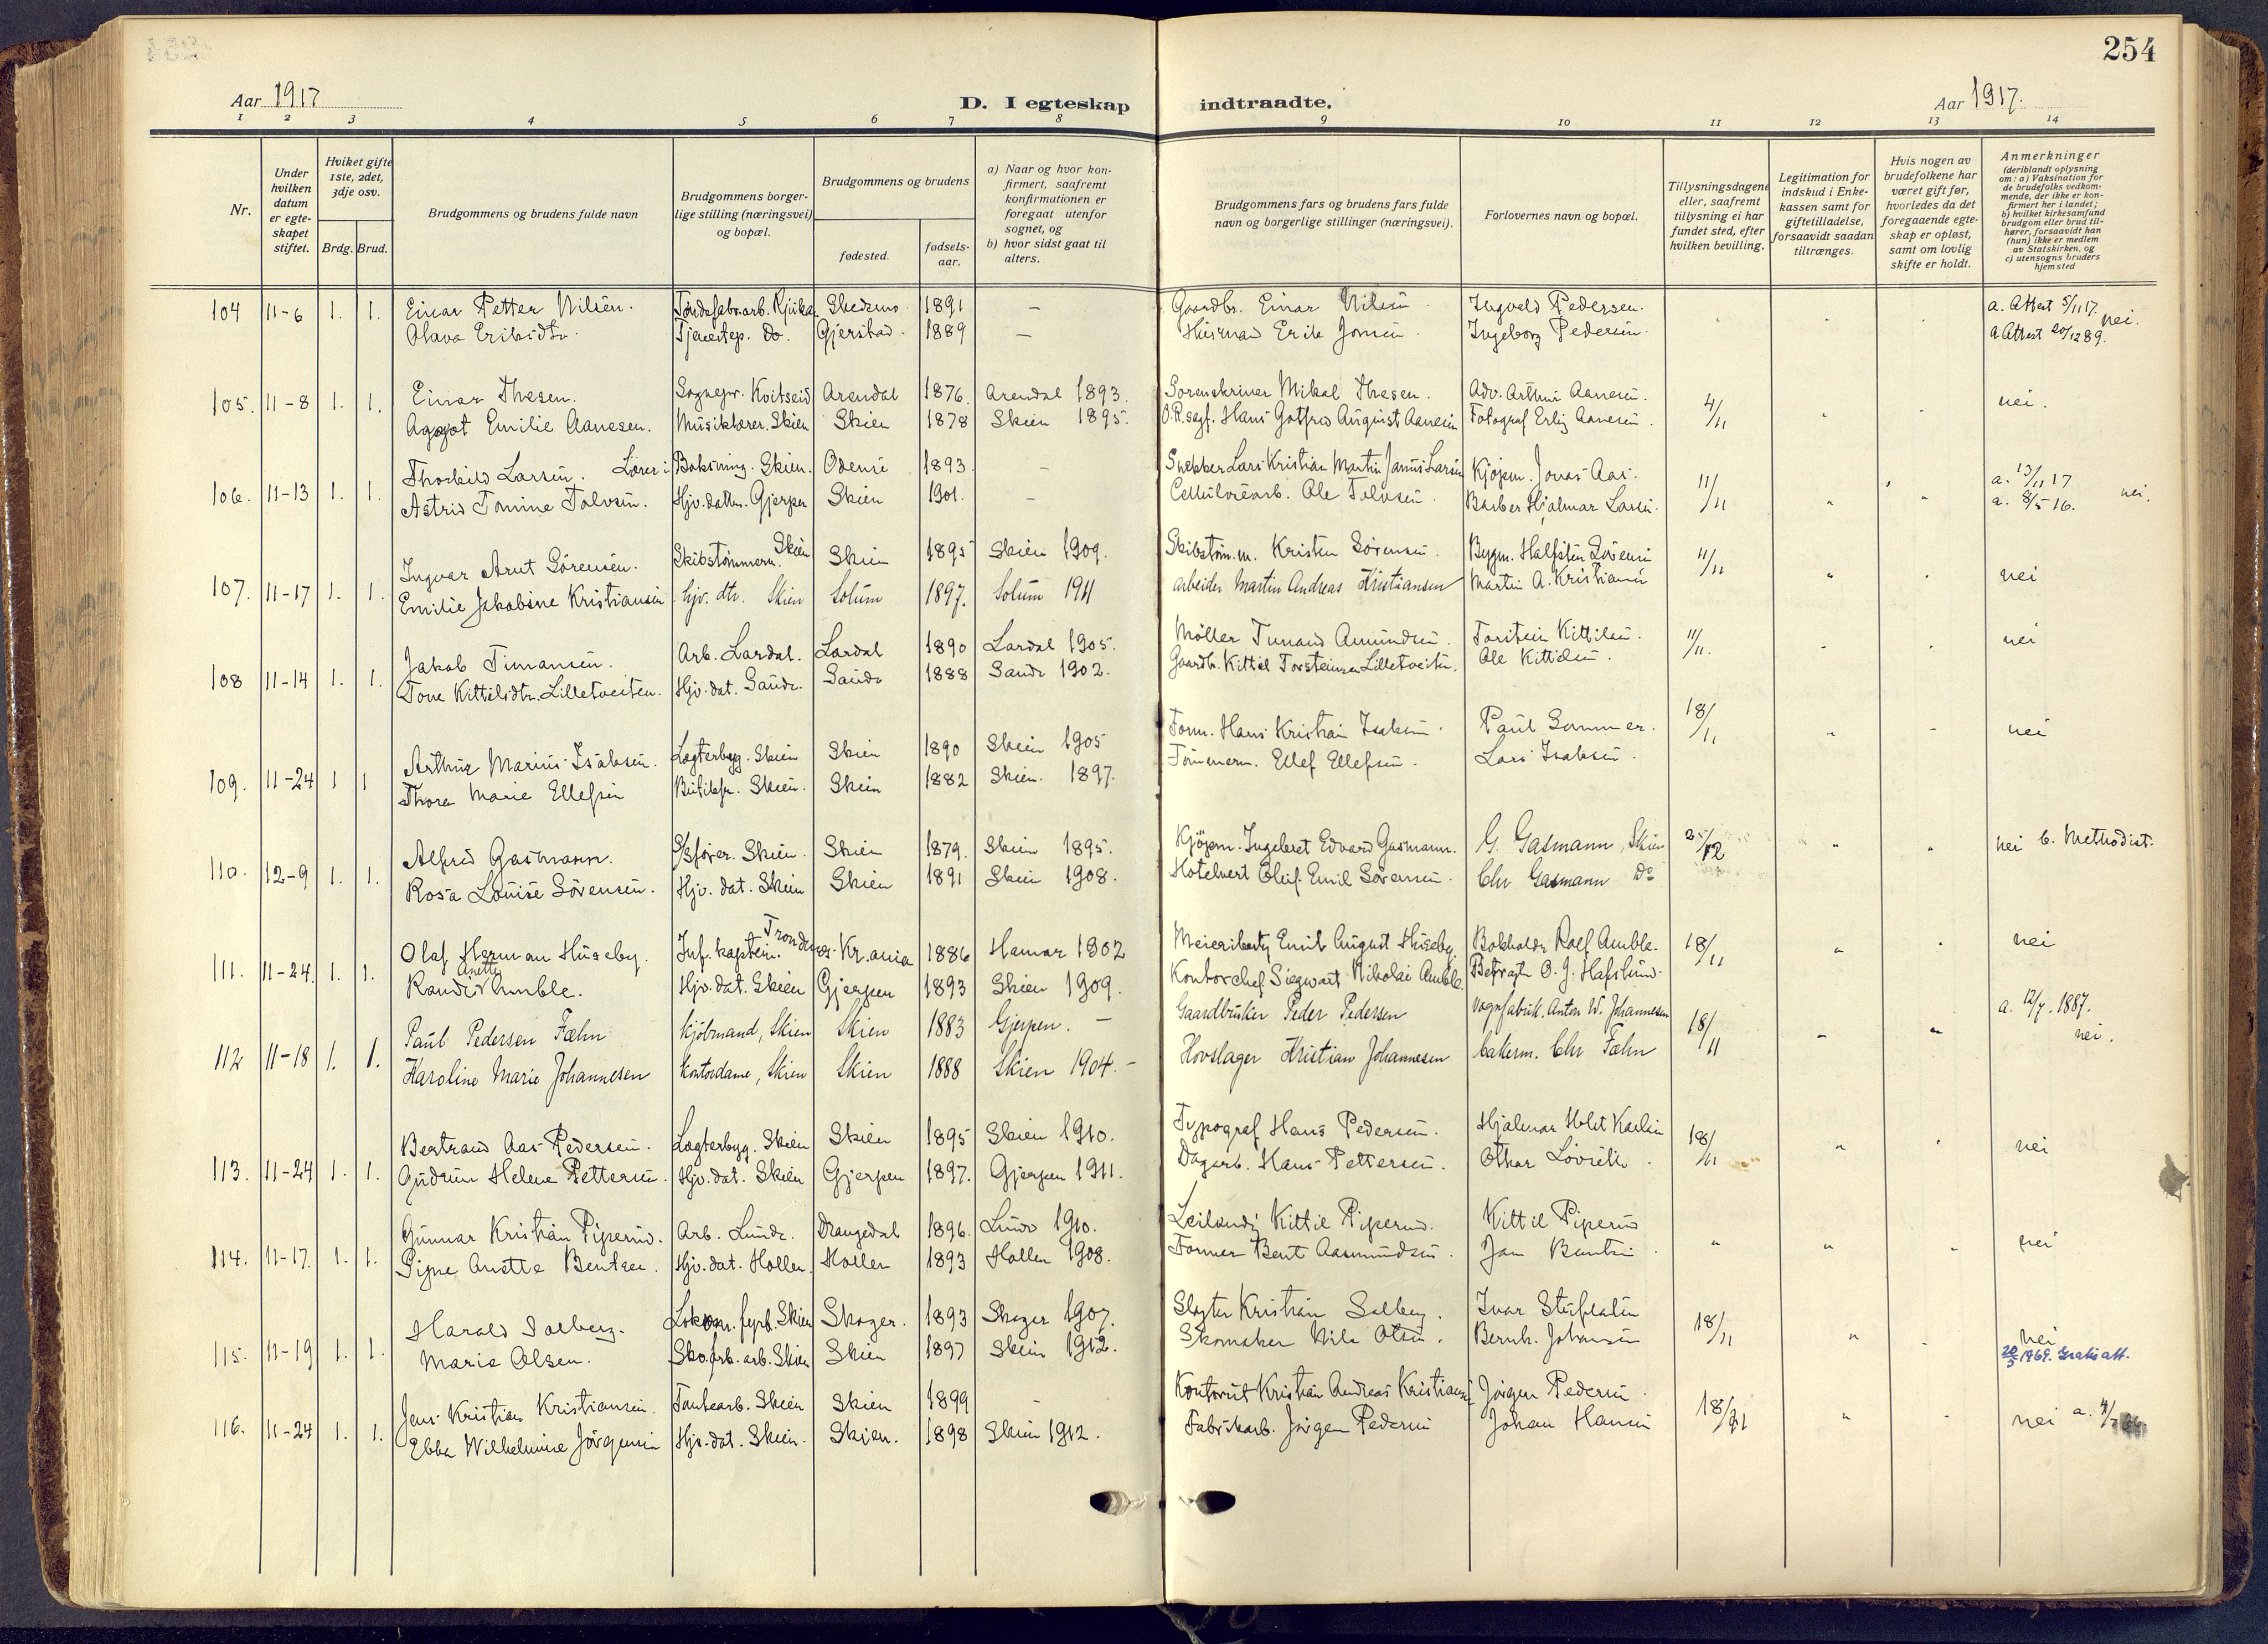 254
Aar 1917
D. I egteskap indtraadte.
Aar 1917.
1 2 3 4 5 6 7 8 9 10 11 12 13 14
Nr.
Under hvilken datum er egteskapet stiftet.
Hvilket gifte 1ste, 2det, 3dje osv.
Brdg. Brud.
Brudgommens og brudens fulde navn
Brudgommens borgerlige stilling (næringsvei) og bopæl.
Brudgommens og brudens
fødested.
fødselsaar.
a) Naar og hvor konfirmert, saafremt konfirmationen er foregaat utenfor sognet, og
b) hvor sidst gaat til alters.
Brudgommens fars og brudens fars fulde navn og borgerlige stillinger (næringsvei).
Forlovernes navn og bopæl.
Tillysningsdagene eller, saafremt tillysning ei har fundet sted, efter hvilken bevilling.
Legitimation for indskud i Enkekassen samt for giftetilladelse, forsaavidt saadan tiltrænges.
Hvis nogen av brudefolkene har været gift før, hvorledes da det foregaaende egteskap er opløst, samt om lovlig skifte er holdt.
Anmerkninger (deriblandt oplysning om: a) Vaksination for de brudefolks vedkommende, der ikke er konfirmert her i landet; b) hvilket kirkesamfund brudgom eller brud tilhører, forsaavidt han (hun) ikke er medlem av Statskirken, og c) utensogns bruders hjemsted
104 11-6 1. 1. Einar Petter Nilsen. 1891 — Gaardbr. Einar Nilsen Ingvald Pedersen. a. Attest 5/11 17. nei.
Olava Tjenestep. do. Gjerstad. 1889 — Ingeborg Pedersen a Attest 20/12 89.
105. 11-8 1. 1. Einar Thesen. Sognepr. Kvitseid Arendal 1876. Arendal 1893. Sorenskriver Mikal Thesen. Adv. Arthur Aanesen. 4/11 nei.
Aagot Emilie Aanesen. Musiklærer. Skien Skien 1878 Skien 1895. O.R.sagf. Hans Gotfred Aanesen Fotograf Erling Aanesen.
106. 11-13 1. 1. Thorkild Larsen. Lærer i Boksning. Skien. Odense 1893. - Snekker Lars Kristian Martin Larsen Kjøpm. Jonas Aas. 11/11 a. 13/11 17 nei.
Astrid Tomine Tolvsen. Hjv. dattr. Gjerpen Skien 1901. - Ole Tolvsen. Barber Hjalmar Larsen. a. 8/5 16.
107. 11-17 1. 1. Ingvar Arnt Sörensen. Skibstømmerm. Skien Skien 1895 Skien 1909. Skibstøm.m. Kristen Sörensen. Bygm. Halfsten Sörensen 11/11 nei
Emilie Jakobine Kristiansen hjv. dtr. Skien Solum 1897. Solum 1911 arbeider Martin Andreas Kristiansen Martin A. Kristiansen
108 11-14 1. 1. Jakob Timansen. Arb. Lardal. Lardal 1890 Lardal 1905. Møller Amundsen. Torstein Kittilsen. 11/11. nei
Tone Kittilsdtr. Lilletveiten. Hjv. dat. Saude. Saude 1888 Saude 1902. Gaardbr. Kittil Torsteinsen Lilletveiten. Ole Kittilsen.
109. 11-24 1 1 Arthur Marius Isaksen. Lægterbyg. Skien Skien 1890 Skien 1905 Form. Hans Kristian Isaksen. Paul Sommer. 18/11 nei
Thora Marie Ellefsen Butikfr. Skien. Skien 1882 Skien. 1897. Tømmerm. Ellef Ellefsen. Lars Isaksen.
110. 12-9 1. 1. Alfred Gasmann. S/Sfører. Skien. Skien 1879. Skien 1895. Kjøpm. Ingebret Edvard Gasmann. G. Gasmann, Skien nei b. Methodist.
Rosa Louise Sörensen. Hjv. dat. Skien Skien 1891 Skien 1908. Hotelvert Oluf Emil Sörensen. Chr Gasmann Do
111. 11-24. 1. 1. Olaf Herman Huseby. Inf. kaptein. Kr.ania 1886 Hamar 1902 Emil August Huseby. Bokholder Rolf Amble. 18/11 nei
Randi Anette Amble. Hjv. dat. Skien Gjerpen 1893 Skien 1909. Kontorchef Siegwart Nikolai Amble O. J. Hafslund.
112 11-18 1. 1. Paul Pedersen Fæhn kjöbmand, Skien Skien 1883 Gjerpen. - Gaardbruker Peder Pedersen Vognfabrik. Anton W. Johannesen 18/11 a. 12/7. 1887. nei.
Karoline Marie Johannesen kontordame, Skien Skien 1888 Skien 1904. Hovslager Kristian Johannesen bakerm. Chr Fæhn
113. 11-24 1. 1. Bertrand Aas Pedersen. Lægterbyg. Skien Skien 1895 Skien 1910. Typograf Hans Pedersen. Hjalmar Holst Karlsen 18/11 nei
Gudrun Helene Pettersen. Hjv. dat. Skien Gjerpen 1897. Gjerpen 1911. Dagarb. Hans Pettersen. Othar
114. 11-17. 1. 1. Gunnar Kristian Piperud. Arb. Lunde. Drangedal 1896. Lunde 1910. Kittil Piperud. Kittil Piperud nei
Signe Anette Bentsen. Hjv. dat. Hollen. Hollen 1893 Hollen 1908. Former Bent Aasmundsen. Jan Bentsen.
115. 11-19 1. 1. Harald Solberg. Lokom. fyrb. Skien Skoger. 1893 Skoger 1907. Slagter Kristian Solberg. Ivar 18/11 nei
Marie Olsen. Sko.fabr. arb. Skien Skien 1897 Skien 1912. Skomaker Nils Olsen. Bernh. Johansen 20/5 1969. Gratis att.
116. 11-24 1. 1. Jens Kristian Kristiansen. Skien Skien 1899 - Kontorist Kristian Andreas Kristiansen Jørgen Pedersen. 18/11 nei
Ebba Wilhelmine Jörgensen Hjv. dat. Skien. Skien. 1898 Skien 1912. Fabrikarb. Jørgen Pedersen Johan Hansen